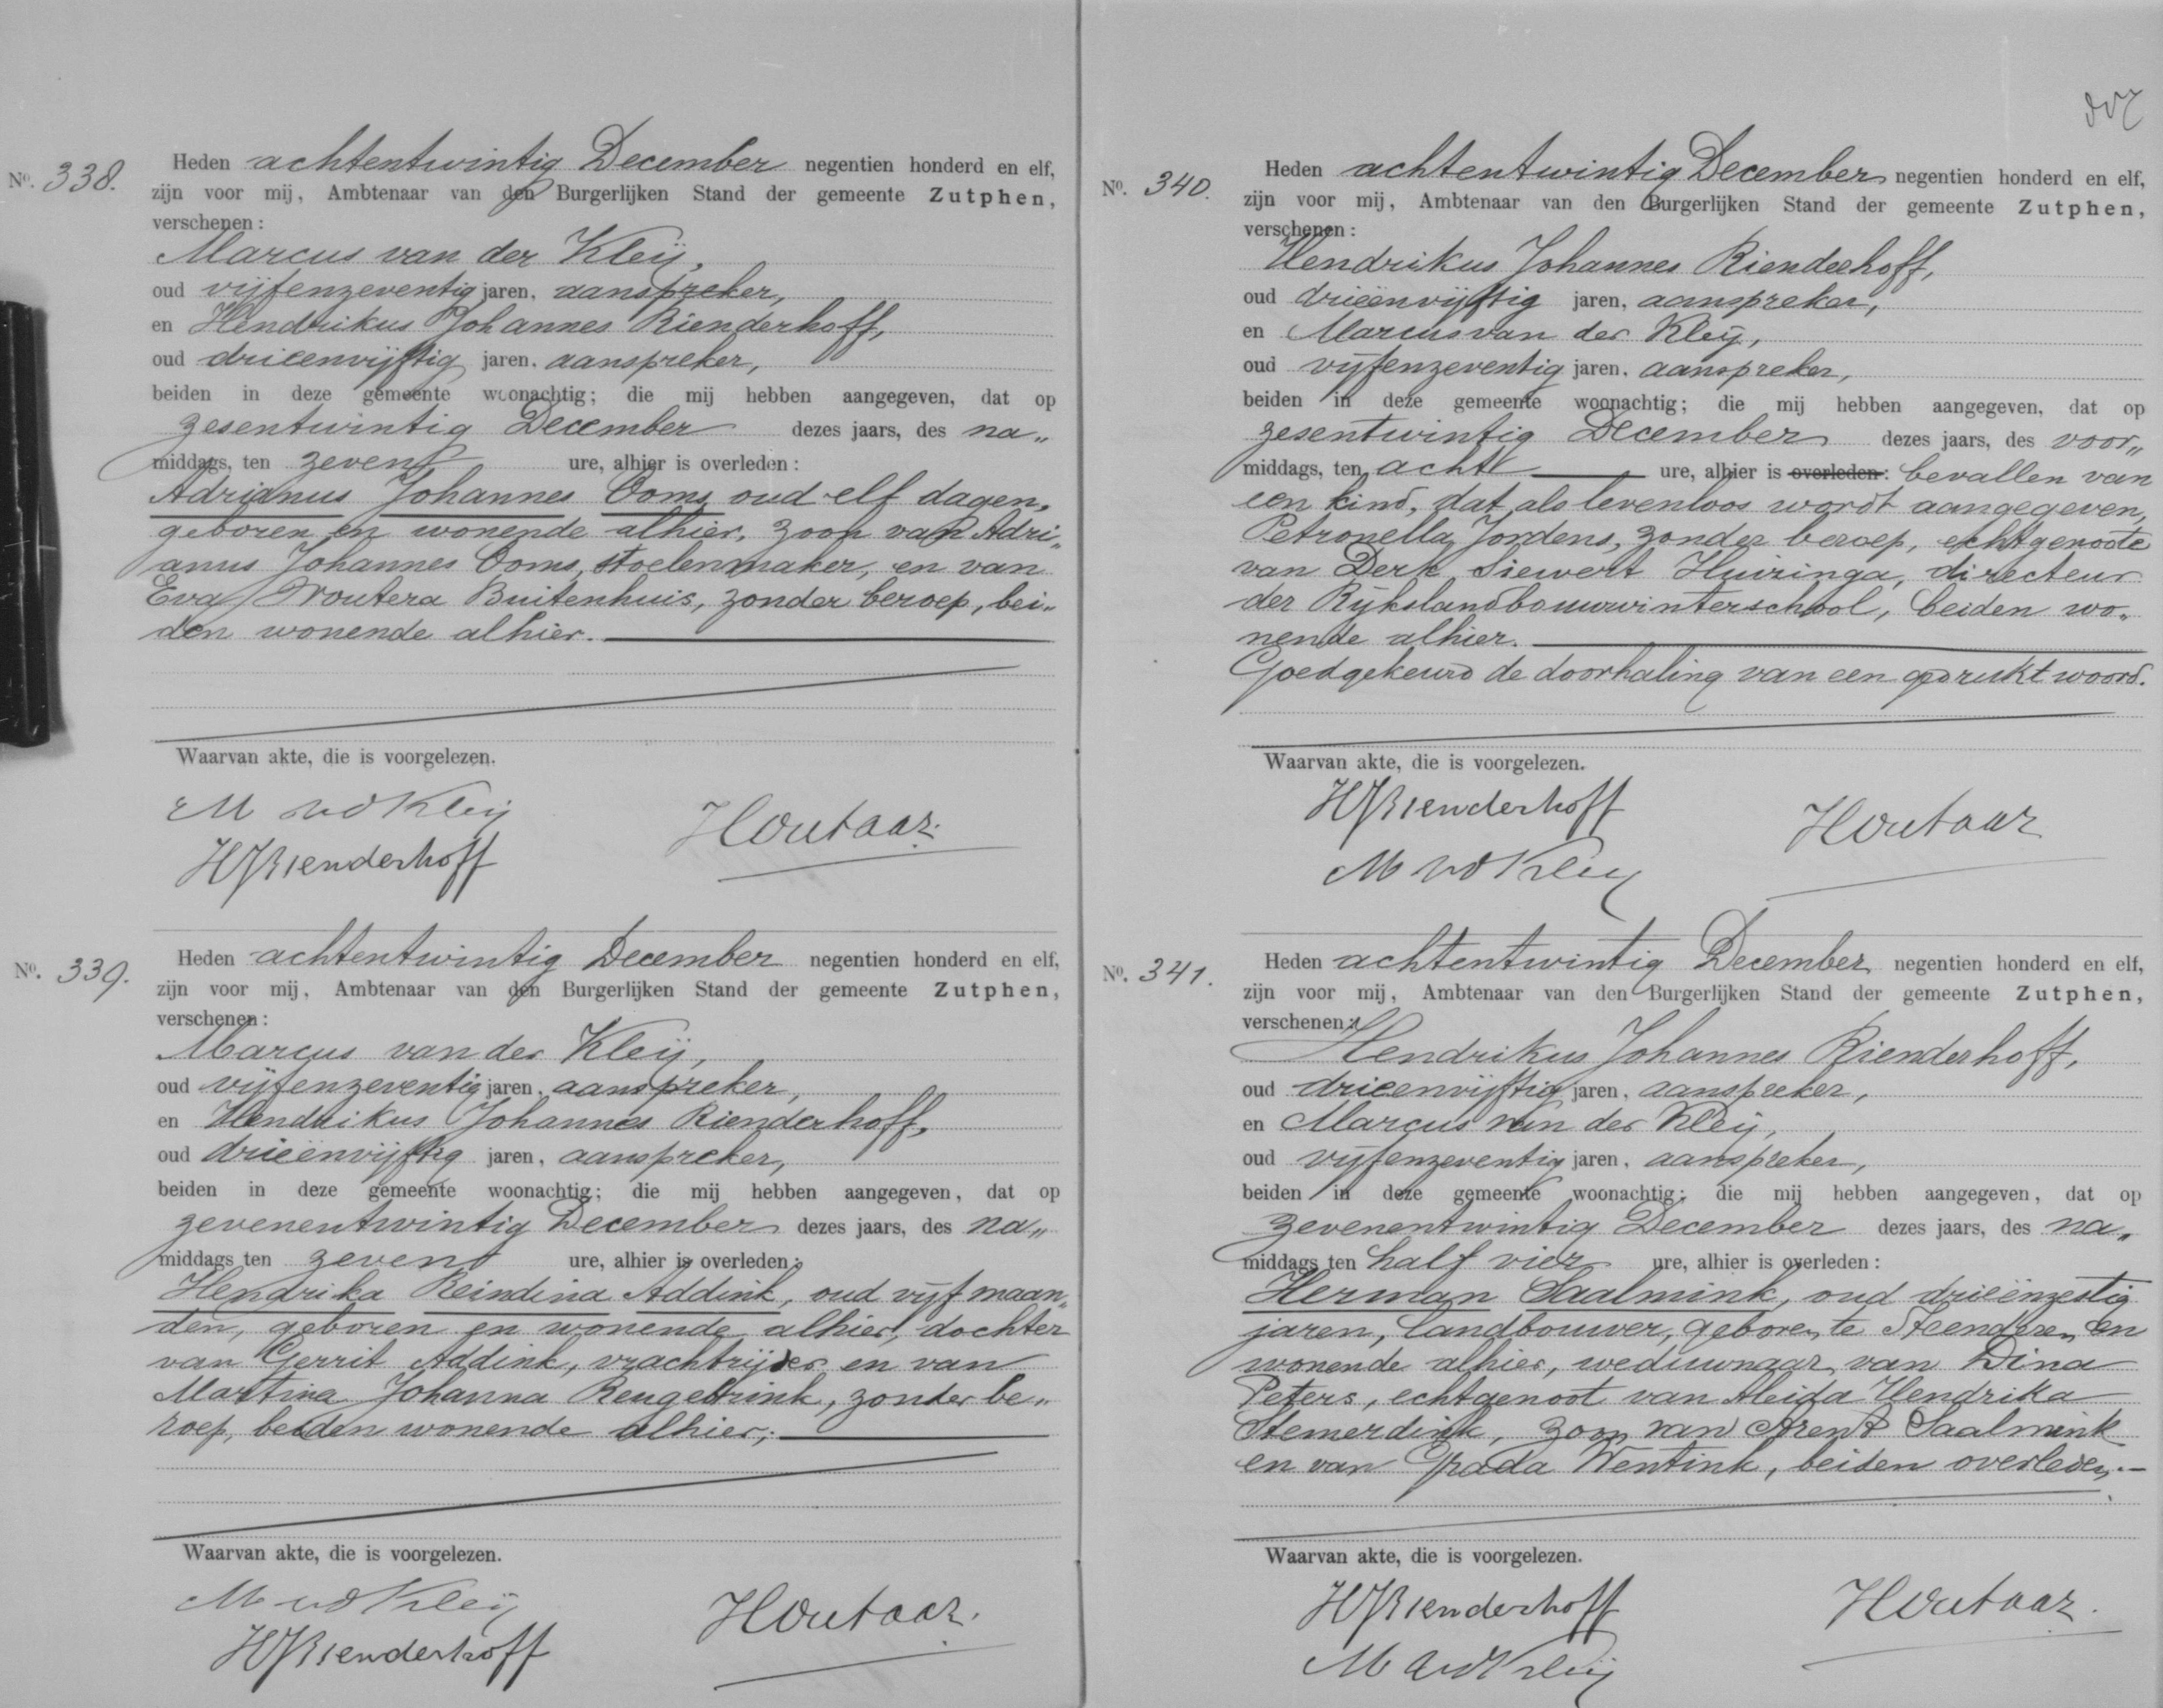 No. 338.
Heden achtentwintig December negentien honderd en elf,
zijn voor mij, Ambtenaar van den Burgerlijken Stand der gemeente Zutphen,
verschenen:
Marcus van der Kleij,
oud vijfenzeventig jaren, aanspreker,
en Hendrikus Johannes Rienderhoff,
oud drieenvijftig jaren, aanspreker,
beiden in deze gemeente woonachtig; die mij hebben aangegeven, dat op
zesentwintig December dezes jaars, des na„
middags, ten zeven ure, alhier is overleden:
Adrianus Johannes Ooms, oud elf dagen,
geboren en wonende alhier, zoon van Adri„
anus Johannes Ooms, stoelenmaker, en van
Eva Woutera Buitenhuis, zonder beroep, bei„
den wonende alhier.
Waarvan akte, die is voorgelezen.
M vd Kleij
HJRienderhoff
Houtaar.
No. 339.
Heden achtentwintig December negentien honderd en elf,
zijn voor mij, Ambtenaar van den Burgerlijken Stand der gemeente Zutphen,
verschenen:
Marcus van der Kleij,
oud vijfenzeventig jaren, aanspreker,
en Hendrikus Johannes Rienderhoff,
oud drieënvijftig jaren, aanspreker,
beiden in deze gemeente woonachtig; die mij hebben aangegeven, dat op
zevenentwintig December dezes jaars, des na„
middags ten zeven ure, alhier is overleden:
Hendrika Reindina Addink, oud vijf maan„
den, geboren en wonende alhier, dochter
van Gerrit Addink, vrachtrijder en van
Martina Johanna Reugebrink, zonder be„
roep, beiden wonende alhier,
Waarvan akte, die is voorgelezen.
M vd Kleij
HJRienderhoff
Houtaar.
No. 340.
Heden achtentwintig December negentien honderd en elf,
zijn voor mij, Ambtenaar van den Burgerlijken Stand der gemeente Zutphen,
verschenen:
Hendrikus Johannes Rienderhoff,
oud drieënvijftig jaren, aanspreker,
en Marcus van der Kleij,
oud vijfenzeventig jaren, aanspreker,
beiden in deze gemeente woonachtig; die mij hebben aangegeven, dat op
zesentwintig December dezes jaars, des voor„
middags, ten acht ure, alhier is overleden: bevallen van
een kind, dat als levenloos wordt aangegeven,
Petronella Jordens, zonder beroep, echtgenoote
van Derk Siewert Huizinga, directeur
der Rijkslandbouwwinterschool, beiden wo„
nende alhier.
Goedgekeurd de doorhaling van een gedrukt woord.
Waarvan akte, die is voorgelezen.
HJRienderhoff
M vd Kleij
Houtaar
No. 341.
Heden achtentwintig December negentien honderd en elf,
zijn voor mij, Ambtenaar van den Burgerlijken Stand der gemeente Zutphen,
verschenen:
Hendrikus Johannes Rienderhoff,
oud drieenvijftig jaren, aanspreker,
en Marcus van der Kleij,
oud vijfenzeventig jaren, aanspreker,
beiden in deze gemeente woonachtig; die mij hebben aangegeven, dat op
zevenentwintig December dezes jaars, des na„
middags ten half vier ure, alhier is overleden:
Herman Saalmink, oud drieënzestig
jaren, landbouwer, geboren te Steenderen en
wonende alhier, weduwnaar van Dina
Peters, echtgenoot van Aleida Hendrika
Stemerdink, zoon van Arent Saalmink
en van Grada Wentink, beiden overleden.
Waarvan akte, die is voorgelezen.
HJRienderhoff
M vd Kleij
Houtaar.